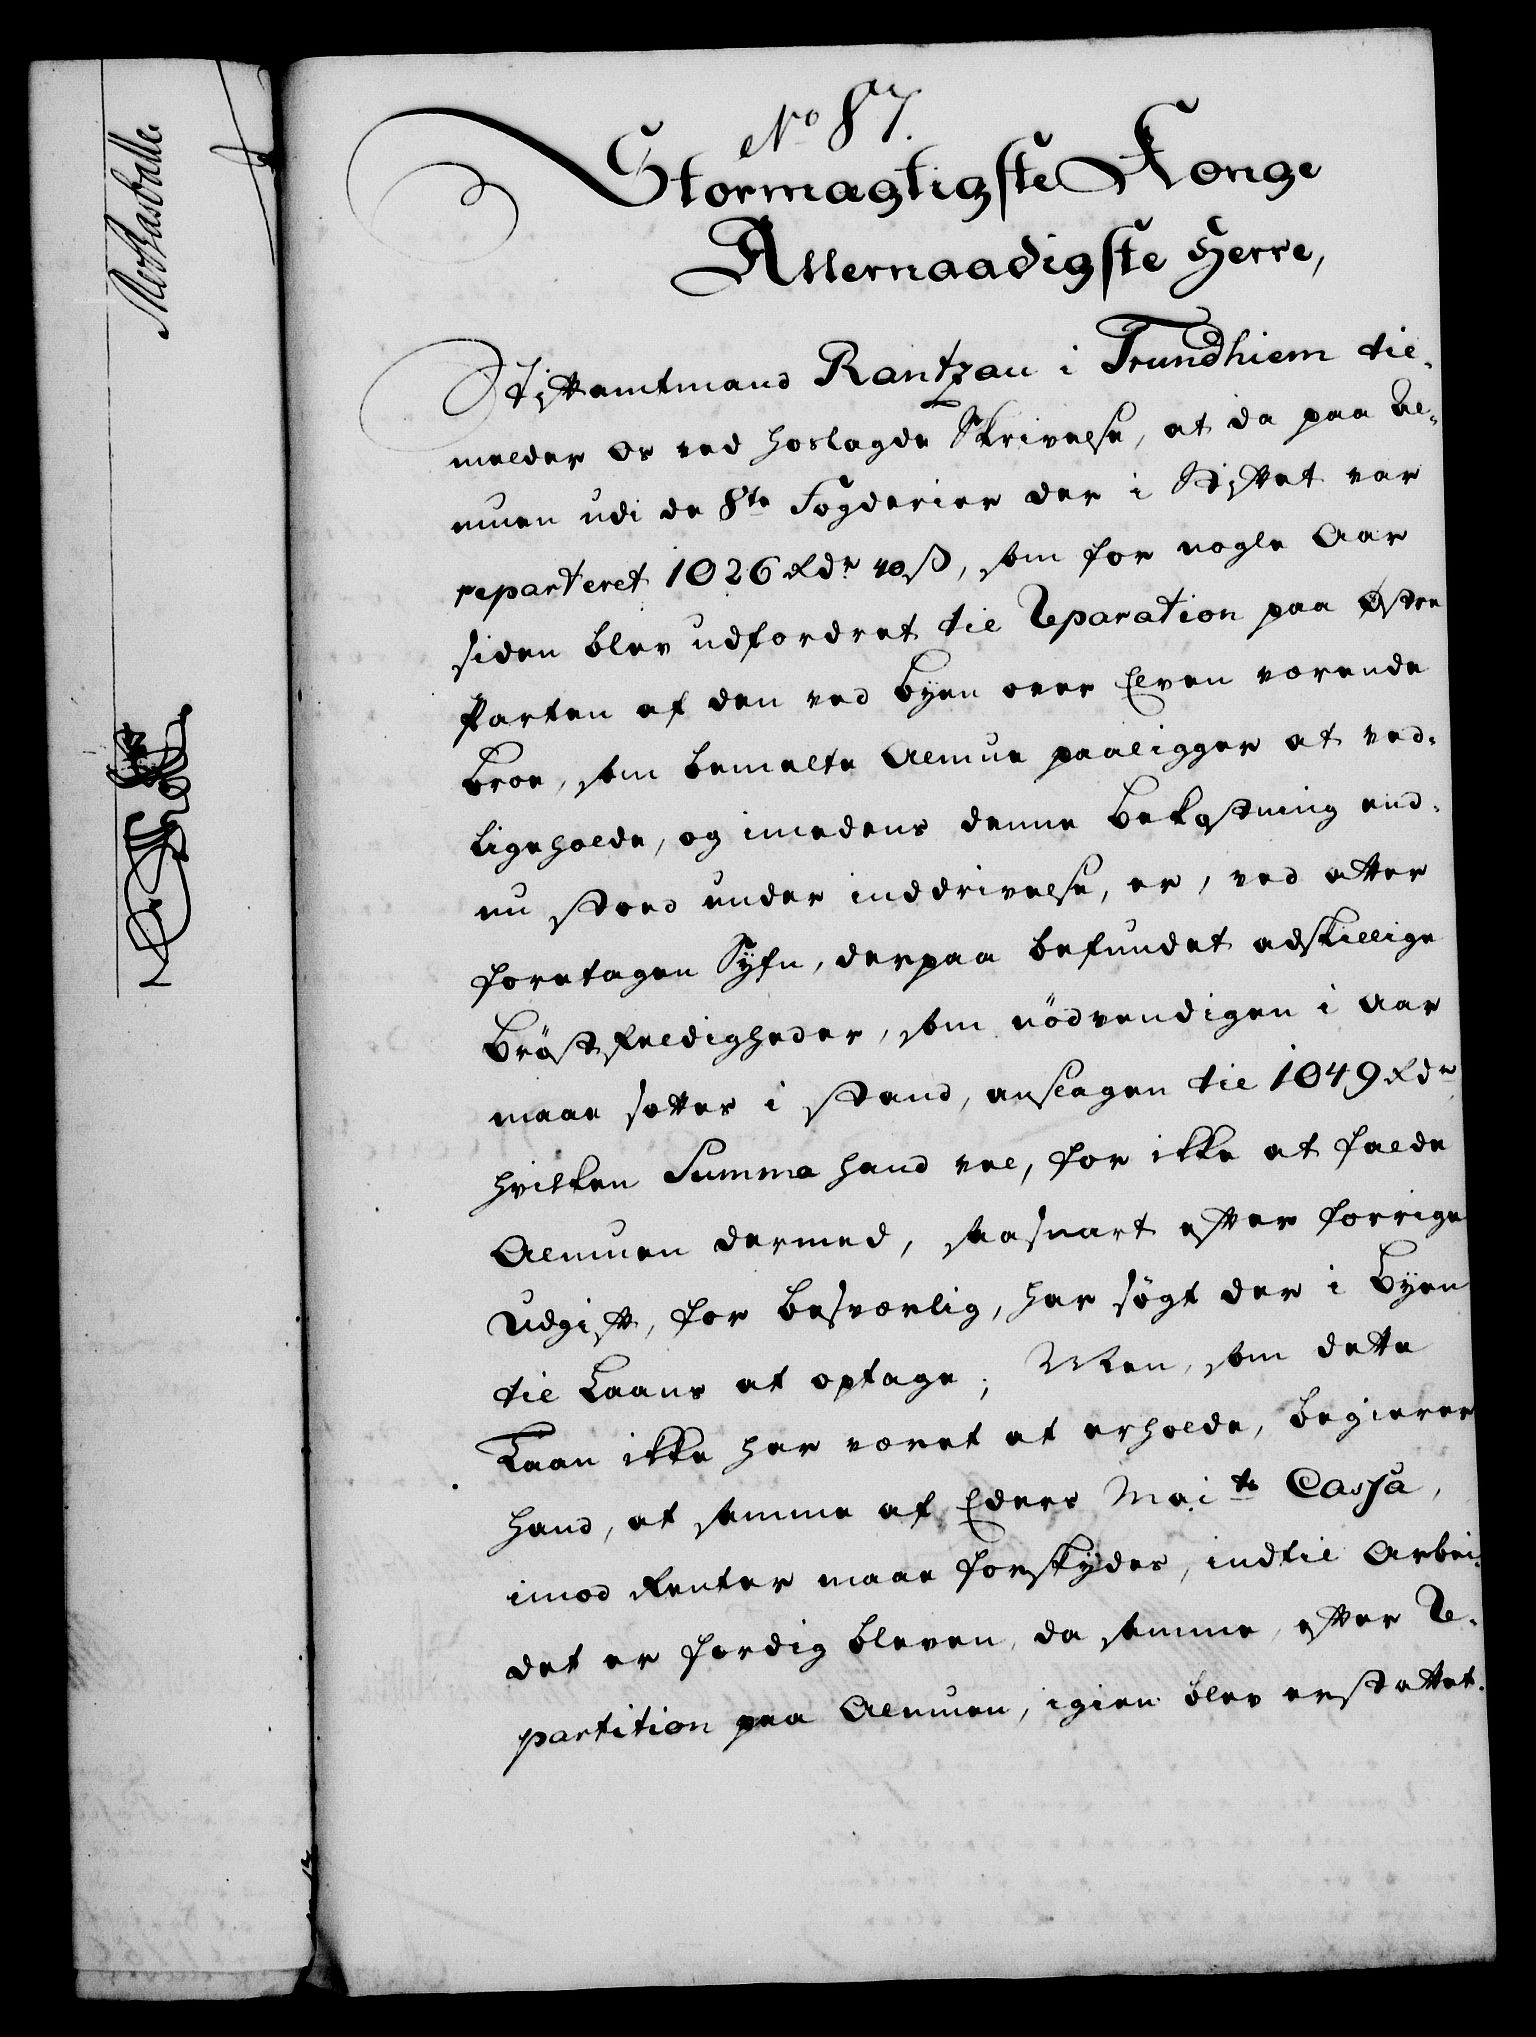 No 87.
Stormægtigste Konge
Allernaadigste Herre,
Stiftamtmand Rantzau i Trundhiem til-
melder os ved hoslagde Skrivelse, at da paa Al-
muen udi de 8te Fogderier der i Stiftet var
reparteret 1026 Rdr 40 ß, som for nogle Aar
siden blev udfordret til Reparation paa Østre
Parten af den ved Byen over Elven værende
Broe, som bemelte Almue paaligger at ved-
ligeholde, og imedens denne Bekostning end-
nu stoed under inddrivelse, er, ved atter
foretagen Syfn, derpaa befundet adskillige
Bröstfeldigheder, som nödvendigen i Aar
maae sættes i stand, anslagen til 1049 Rdr
hvilken Summa hand vel, for ikke at falde
Almuen dermed, saasnart efter forrige
Udgift, for besværlig, har sögt der i Byen
til Laans at optage; Men, som dette
Laan ikke har været at erholde, begierer
hand, at samme af Eders Maits Cassa,
imod Renter maae forskydes, indtil Arbei-
det er færdig bleven, da samme, efter Re-
partition paa Almuen, igien blev erstattet.